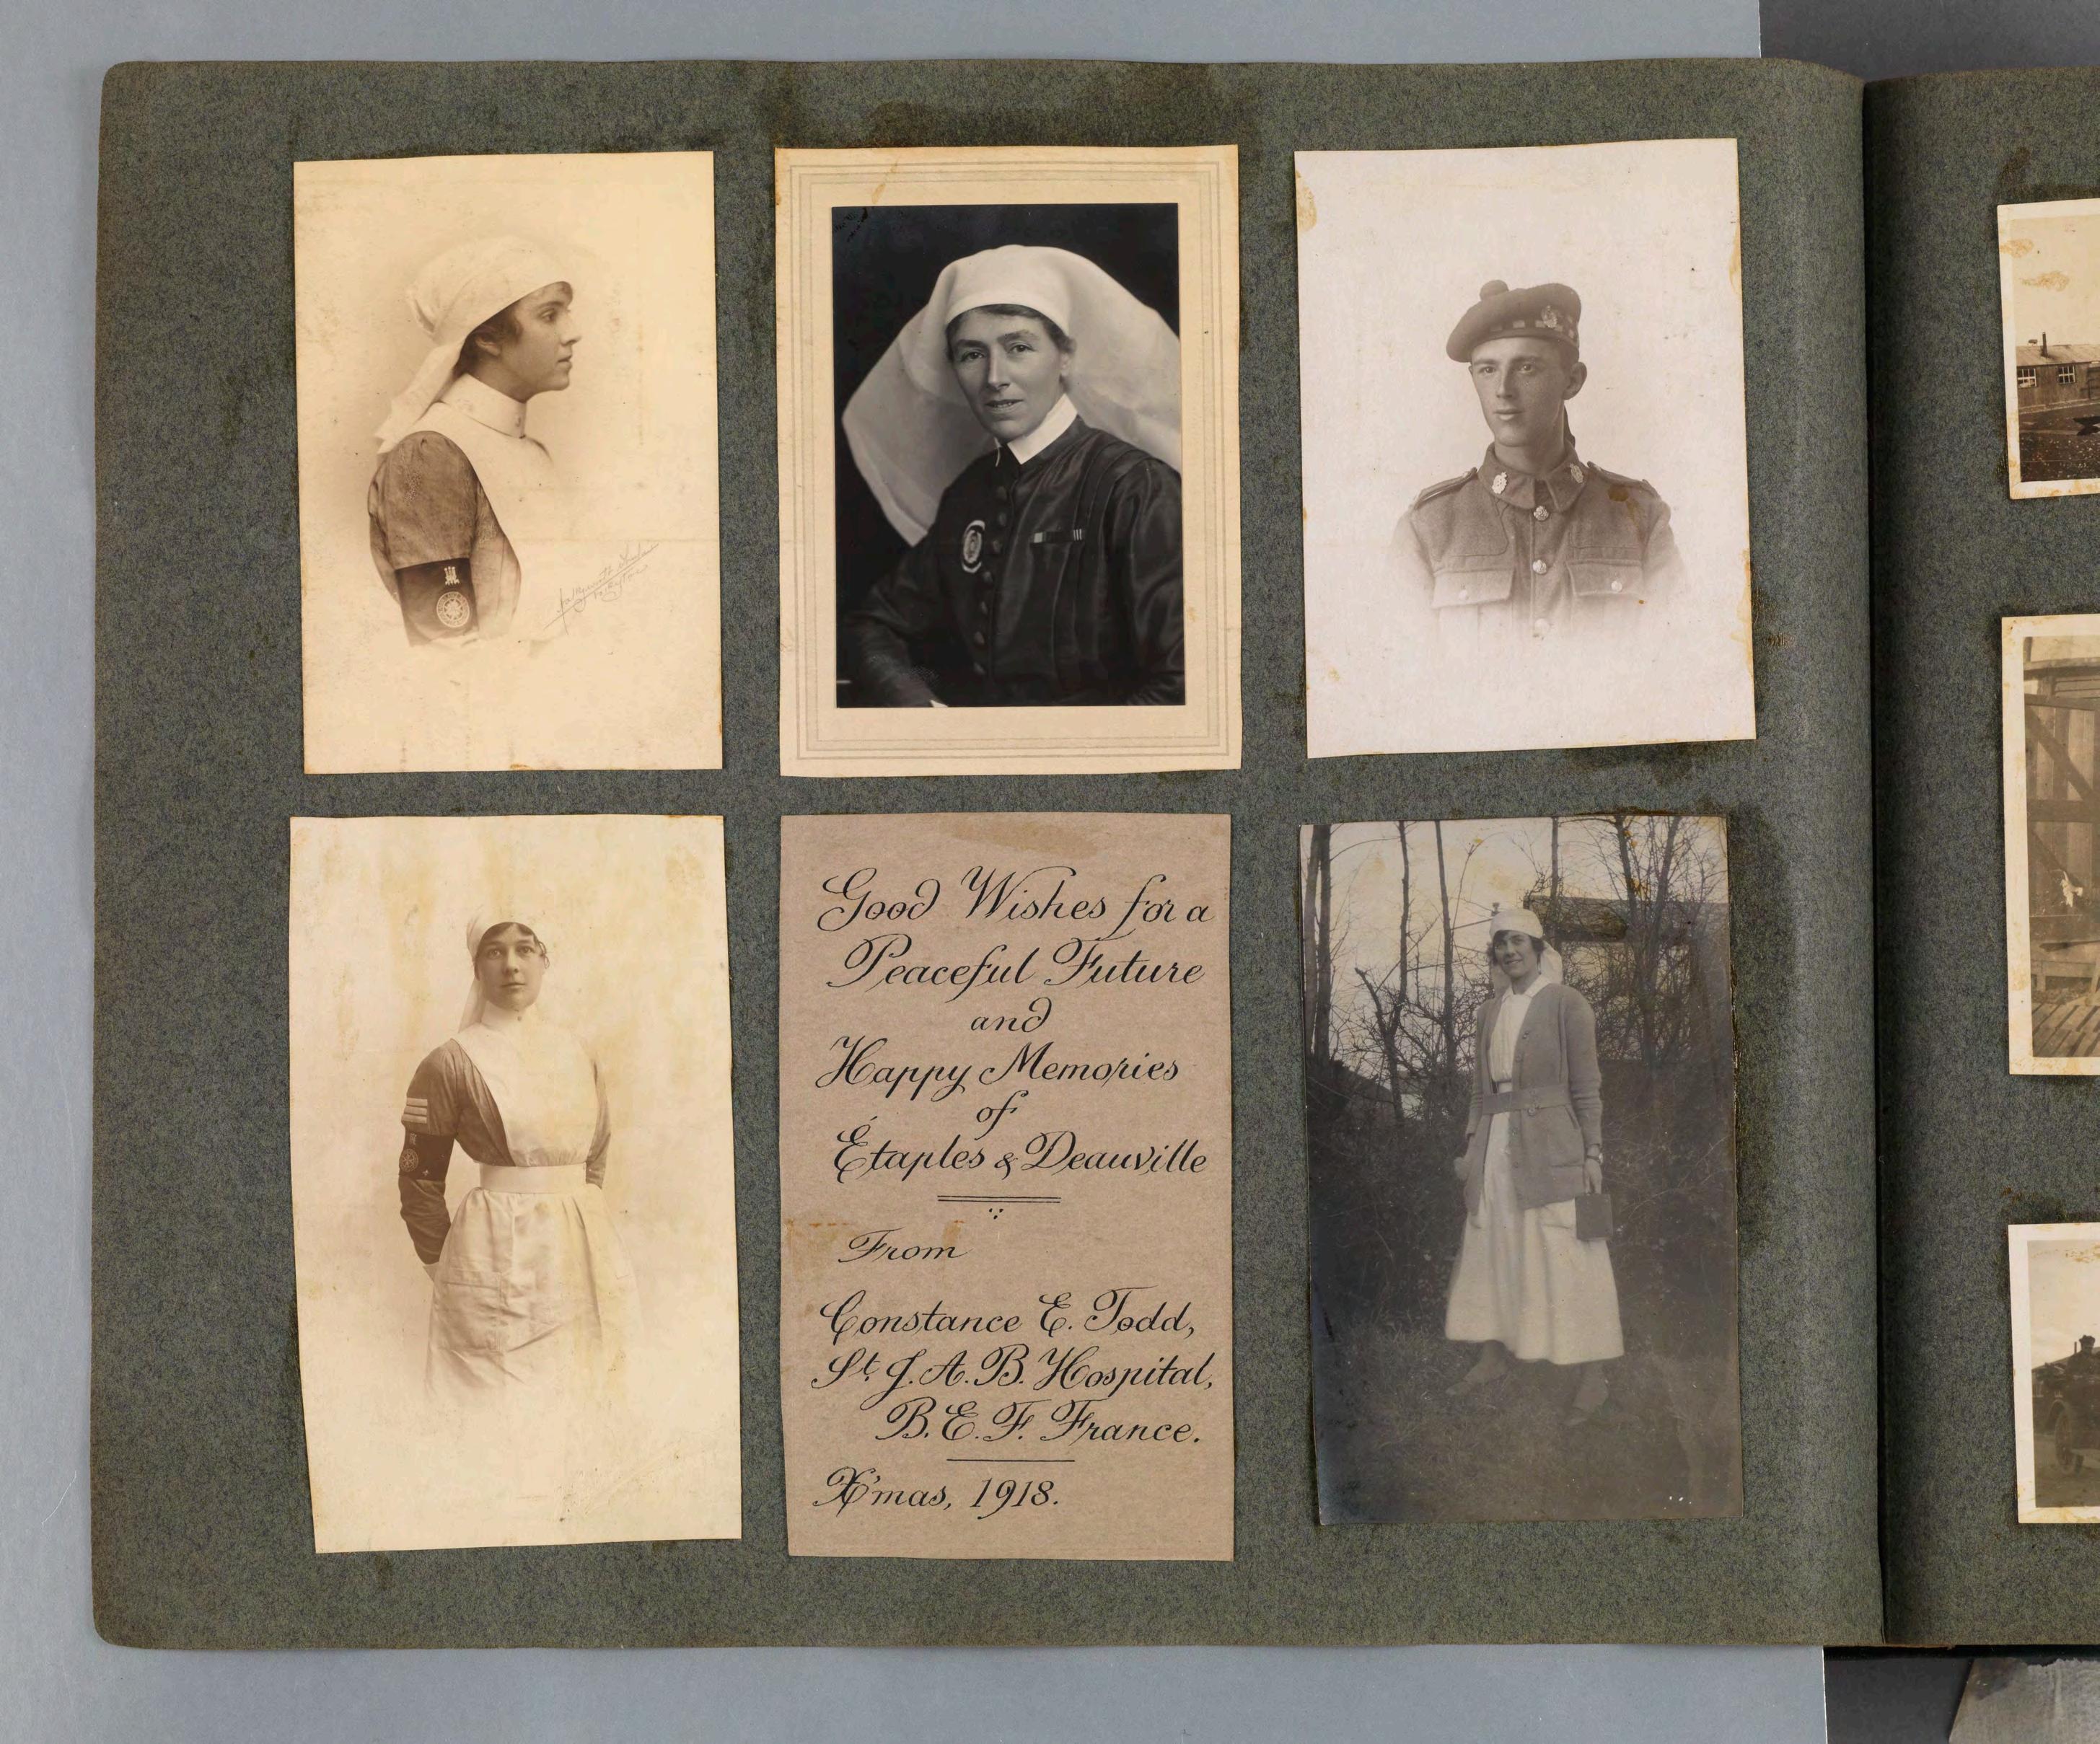 Good Wishes for a
Peaceful Future
and
Happy Memories
of
Étaples & Deauville
From
Constance E. Todd,
St. J. A. B. Hospital,
B. E. F. France.
X'mas, 1918.